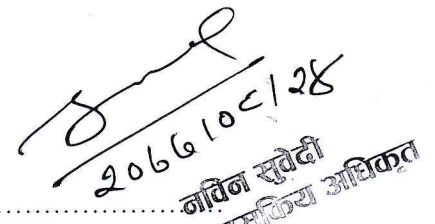 २०६६|०८|२४
नविन सुवेदी
अधिकृत